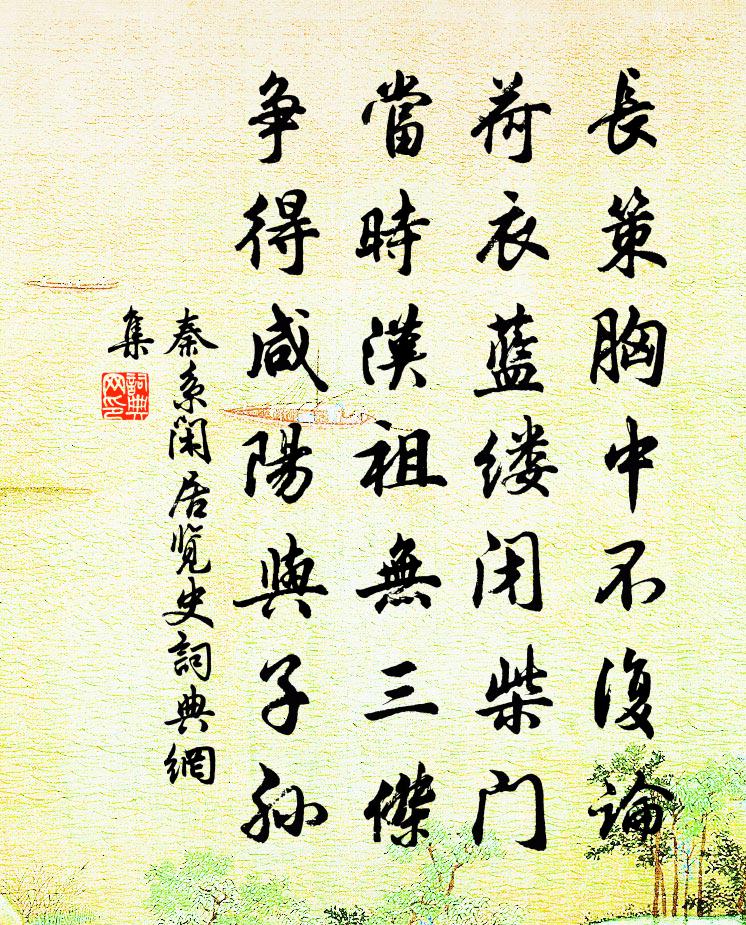 長策胸中不復論
荷衣藍缕闭柴门
當時漢祖無三傑
争得咸陽與子孫
秦系闲居览史詞典網
集
詞典
网印